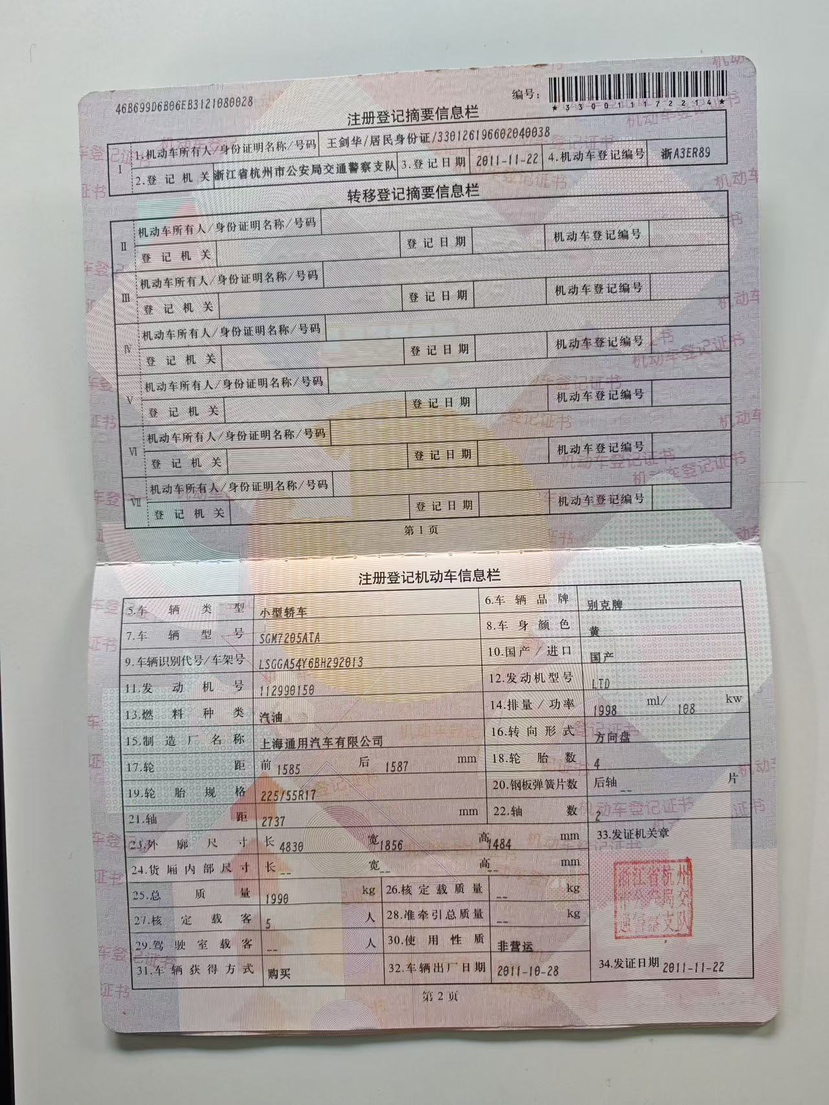 46B699D6B06EB3121080028
编号:
★330011172214★
注册登记摘要信息栏
Ⅰ 1.机动车所有人/身份证明名称/号码 王剑华/居民身份证/330126196602040038
2.登记机关 浙江省杭州市公安局交通警察支队 3.登记日期 2011-11-22 4.机动车登记编号 浙A3ER89
转移登记摘要信息栏
Ⅱ 机动车所有人/身份证明名称/号码
登记机关 登记日期 机动车登记编号
Ⅲ 机动车所有人/身份证明名称/号码
登记机关 登记日期 机动车登记编号
Ⅳ 机动车所有人/身份证明名称/号码
登记机关 登记日期 机动车登记编号
Ⅴ 机动车所有人/身份证明名称/号码
登记机关 登记日期 机动车登记编号
Ⅵ 机动车所有人/身份证明名称/号码
登记机关 登记日期 机动车登记编号
Ⅶ 机动车所有人/身份证明名称/号码
登记机关 登记日期 机动车登记编号
第1页
注册登记机动车信息栏
5.车辆类型 小型轿车 6.车辆品牌 别克牌
7.车辆型号 SGM7205ATA 8.车身颜色 黄
9.车辆识别代号/车架号 LSGGA54Y6BH292013 10.国产/进口 国产
11.发动机号 112990150 12.发动机型号 LTD
13.燃料种类 汽油 14.排量/功率 1998 ml/ 108 kw
15.制造厂名称 上海通用汽车有限公司 16.转向形式 方向盘
17.轮距 前 1585 后 1587 mm 18.轮胎数 4
19.轮胎规格 225/55R17 20.钢板弹簧片数 后轴 -- 片
21.轴距 2737 mm 22.轴数 2
23.外廓尺寸 长 4830 宽 1856 高 1484 mm 33.发证机关章
24.货厢内部尺寸 长 -- 宽 -- 高 -- mm
25.总质量 1990 kg 26.核定载质量 -- kg
27.核定载客 5 人 28.准牵引总质量 -- kg
29.驾驶室载客 -- 人 30.使用性质 非营运
浙江省杭州
市公安局交
通警察支队
31.车辆获得方式 购买 32.车辆出厂日期 2011-10-28 34.发证日期 2011-11-22
第2页